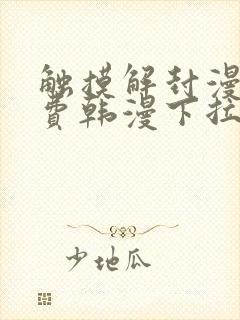 触摸解封漫
费韩漫下拉
少地瓜